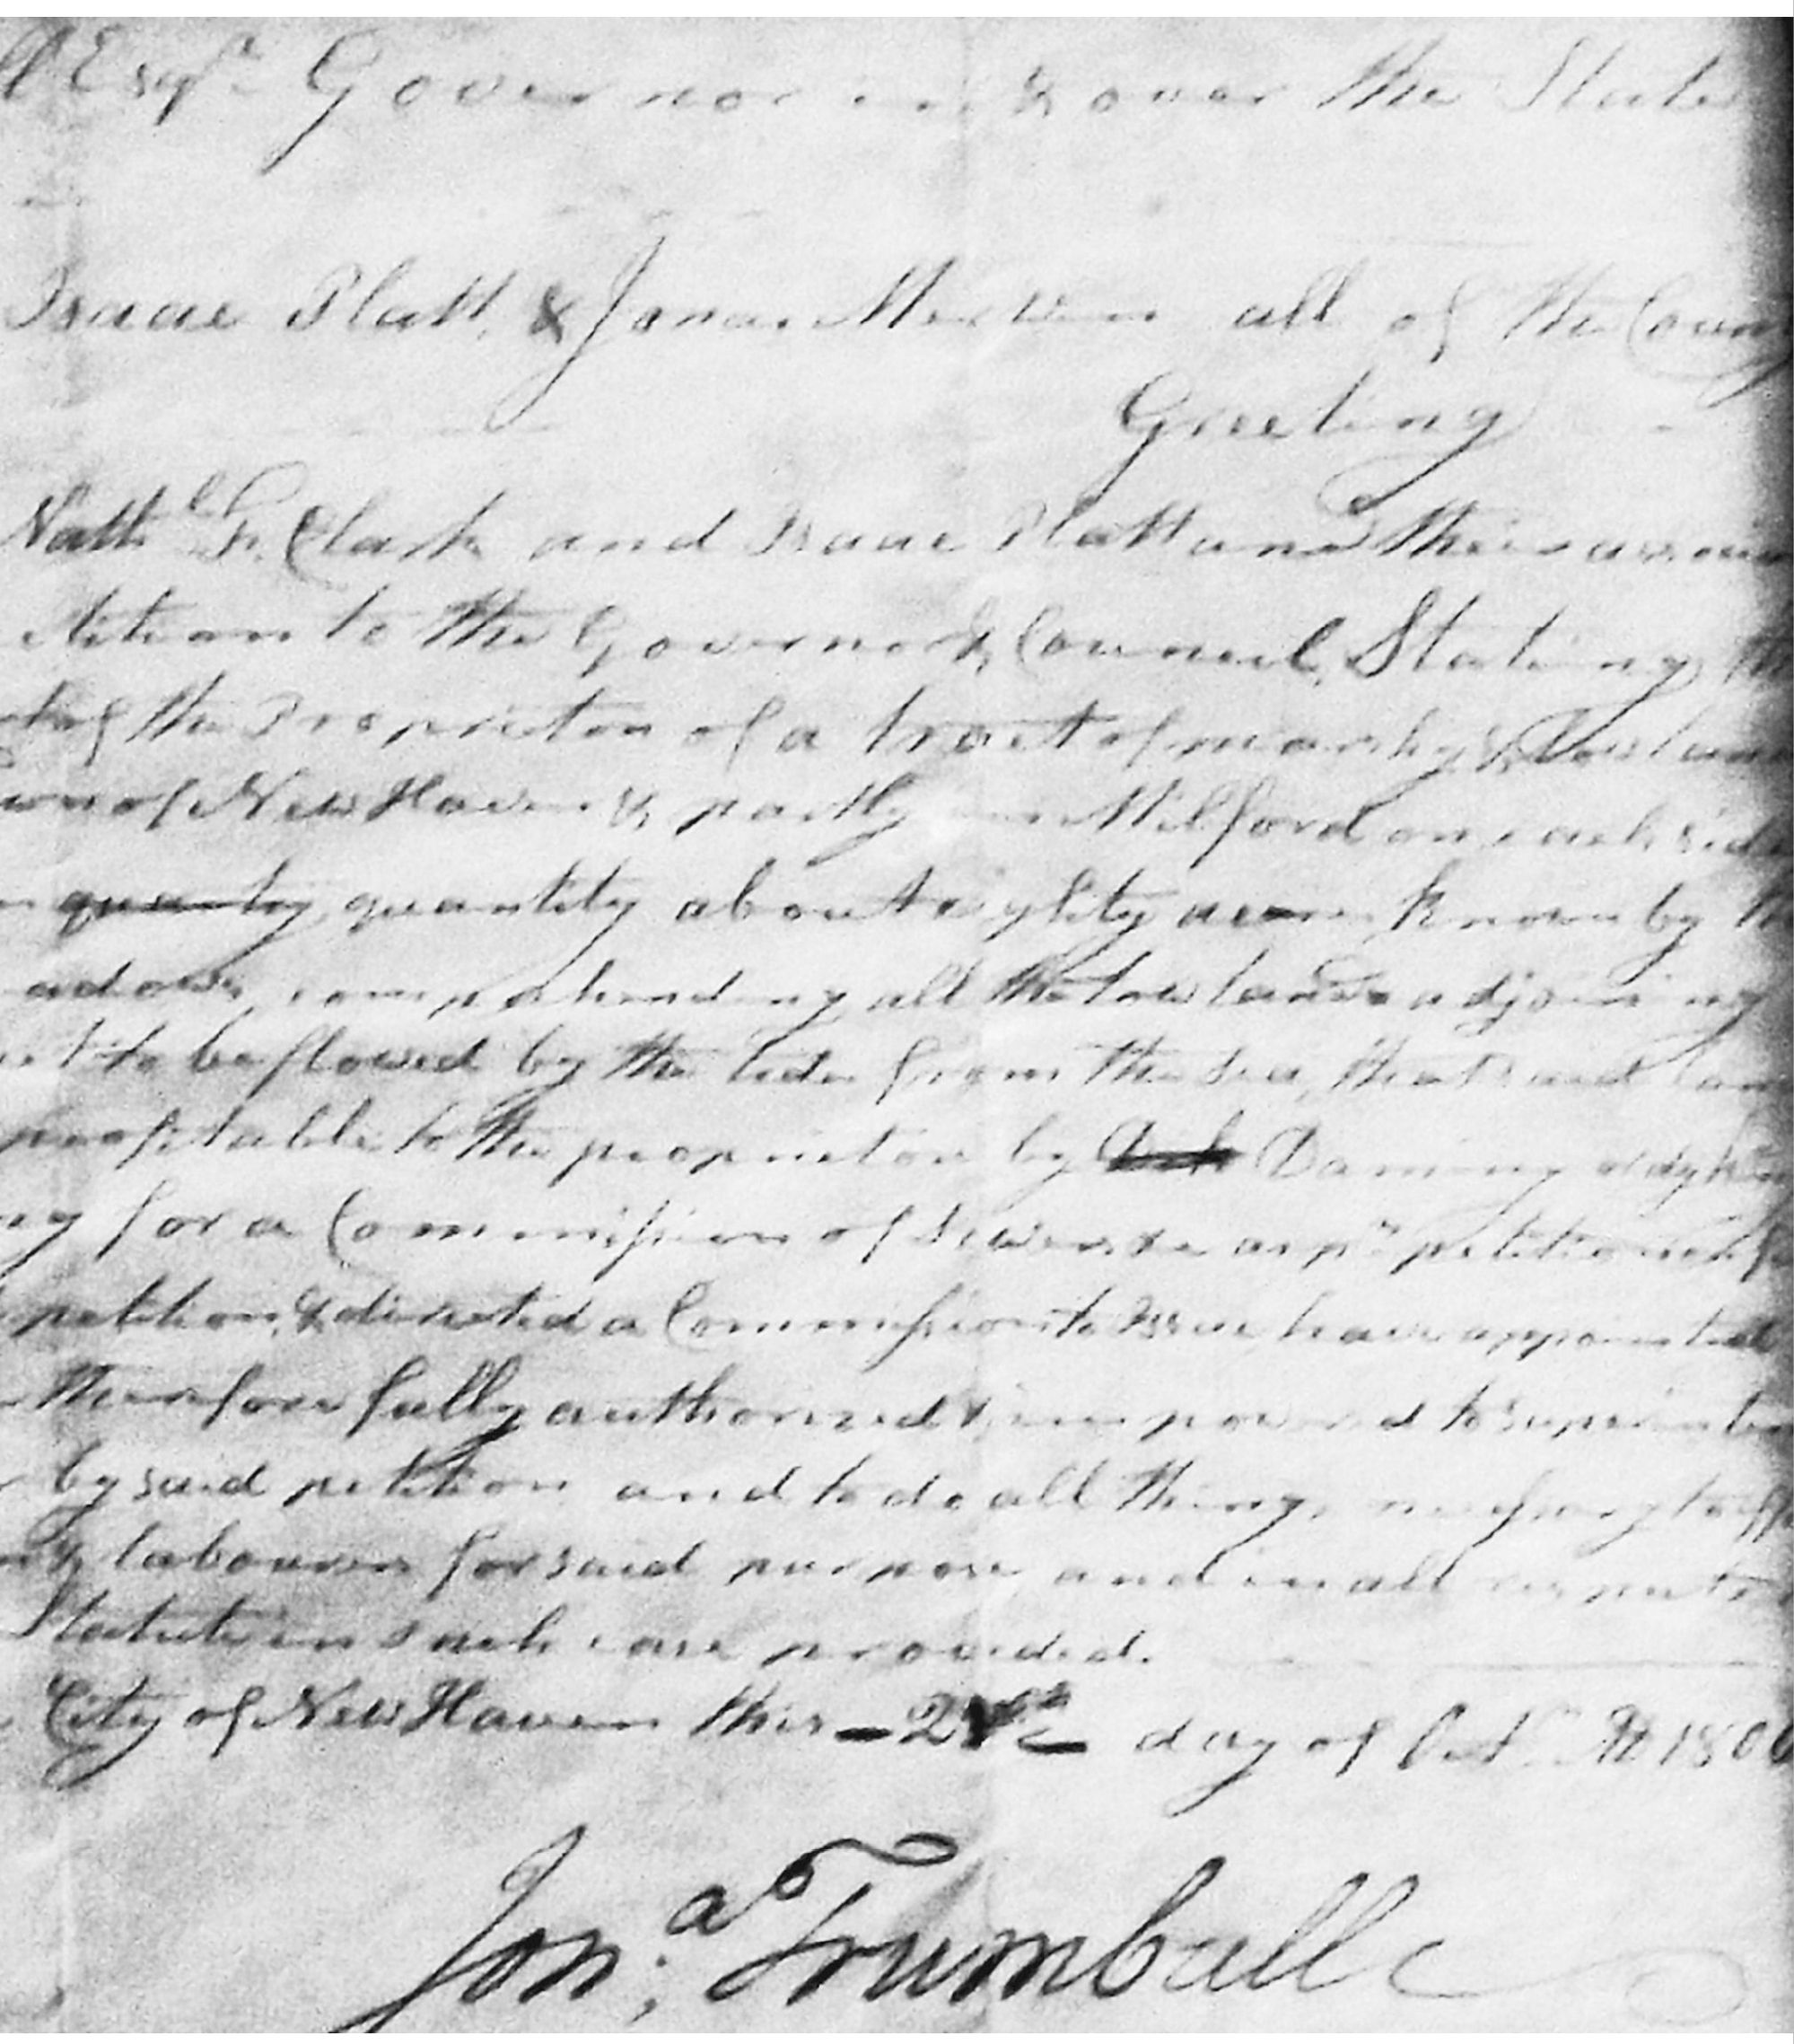 Esqr. Governor in & over the State
Isaac Platt, & Jonas all of the Coun
Greeting
Nathl. G. Clark and Isaac Platt and their
etition to the Governor & Council, Stating th
of the Proprietors of a tract of marshy & Low lan
own of New Haven & partly in Milford on each side
quanty quantity about eighty acres known by th
adows, comprehending all the low lands adjoining
to be flowed by the tides from the Sea, that said lan
profitable to the proprietors by Daming or dyking
ng for a Commission of Sewers &c as pr. petition
petition, & directed a Commission to Issue, have appointed
therefore fully authorized & impowered to superinten
by said petition and to do all things necessary to
labourers for said purpose, and in all respects
Statute in such case provided.
City of New Haven this day of Octr. AD 1806
Jona. Trumbull